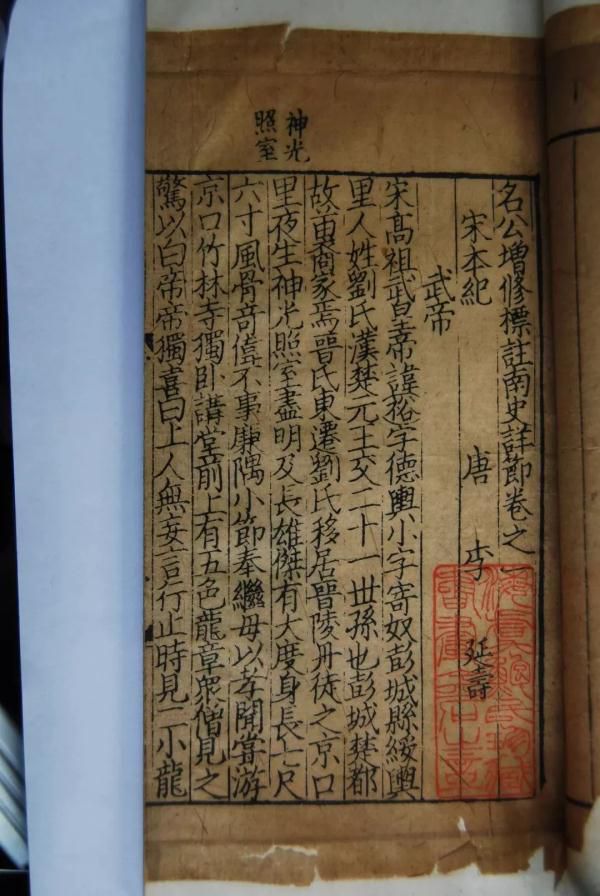 名公增修標註南史詳節卷之一
宋本紀 唐 李 延壽
武帝
宋高祖武皇帝諱裕字德輿小字寄奴彭城縣綏輿
里人姓劉氏漢楚元王交二十一世孫也彭城楚都
故苗裔家焉晉氏東遷劉氏移居晉陵丹徒之京口
里夜生神光照室盡明及長雄傑有大度身長七尺
六寸風骨奇偉不事廉隅小節奉繼母以孝聞嘗游
京口竹林寺獨卧講堂前上有五色龍章衆僧見之
驚以白帝帝獨喜曰上人無妄言行止時見二小龍
神光
照室